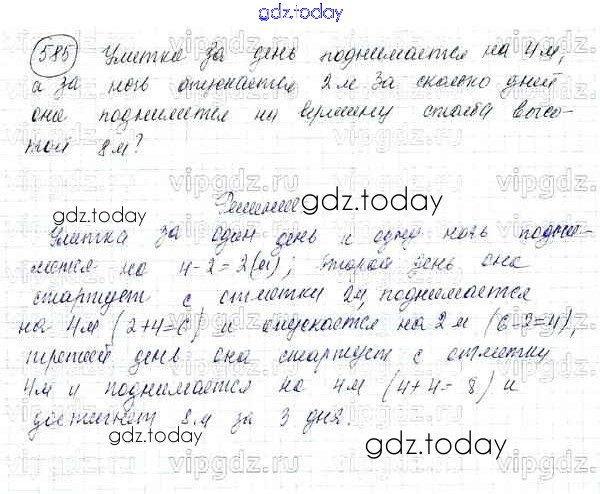 gdz.today
585 Улитка за день поднимается на 4м,
а за ночь опускается 2м. За сколько дней
она поднимется на вершину столба высо-
той 8м?
vipgdz.ru
Решение
gdz.today
gdz.today
Улитка за один день и одну ночь подни-
мется на 4-2=2(м); второй день она
стартует с отметки 2м, поднимается
на 4м (2+4=6) и опускается на 2м (6-2=4),
третий день она стартует с отметки
4м и поднимается на 4м (4+4= 8) и
достигнет 8м за 3 дня.
gdz.today
gdz.today
vipgdz.ru